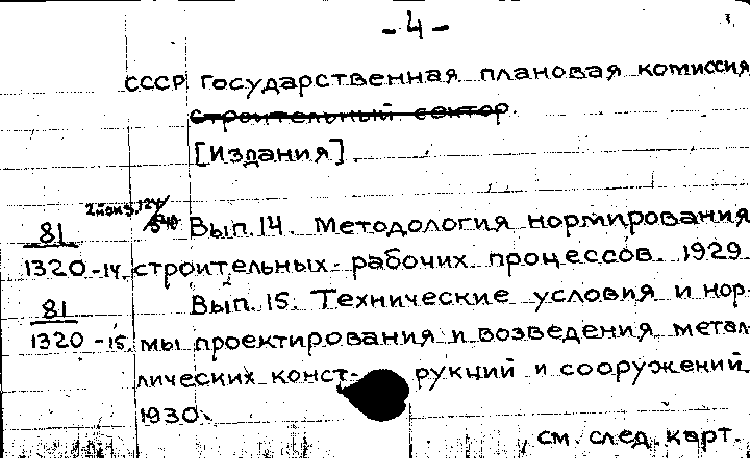 - 4 -
СССР. Государственная плановая комиссия
Строительный сектор.
[Издания].
81 Вып. 14. Методология нормирования
1320-14. строительных рабочих процессов. 1929
81 Вып. 15. Технические условия и нор-
1320-15. мы проектирования и возведения метал
лических конст- рукций и сооружений.
1930.
см. след. карт.